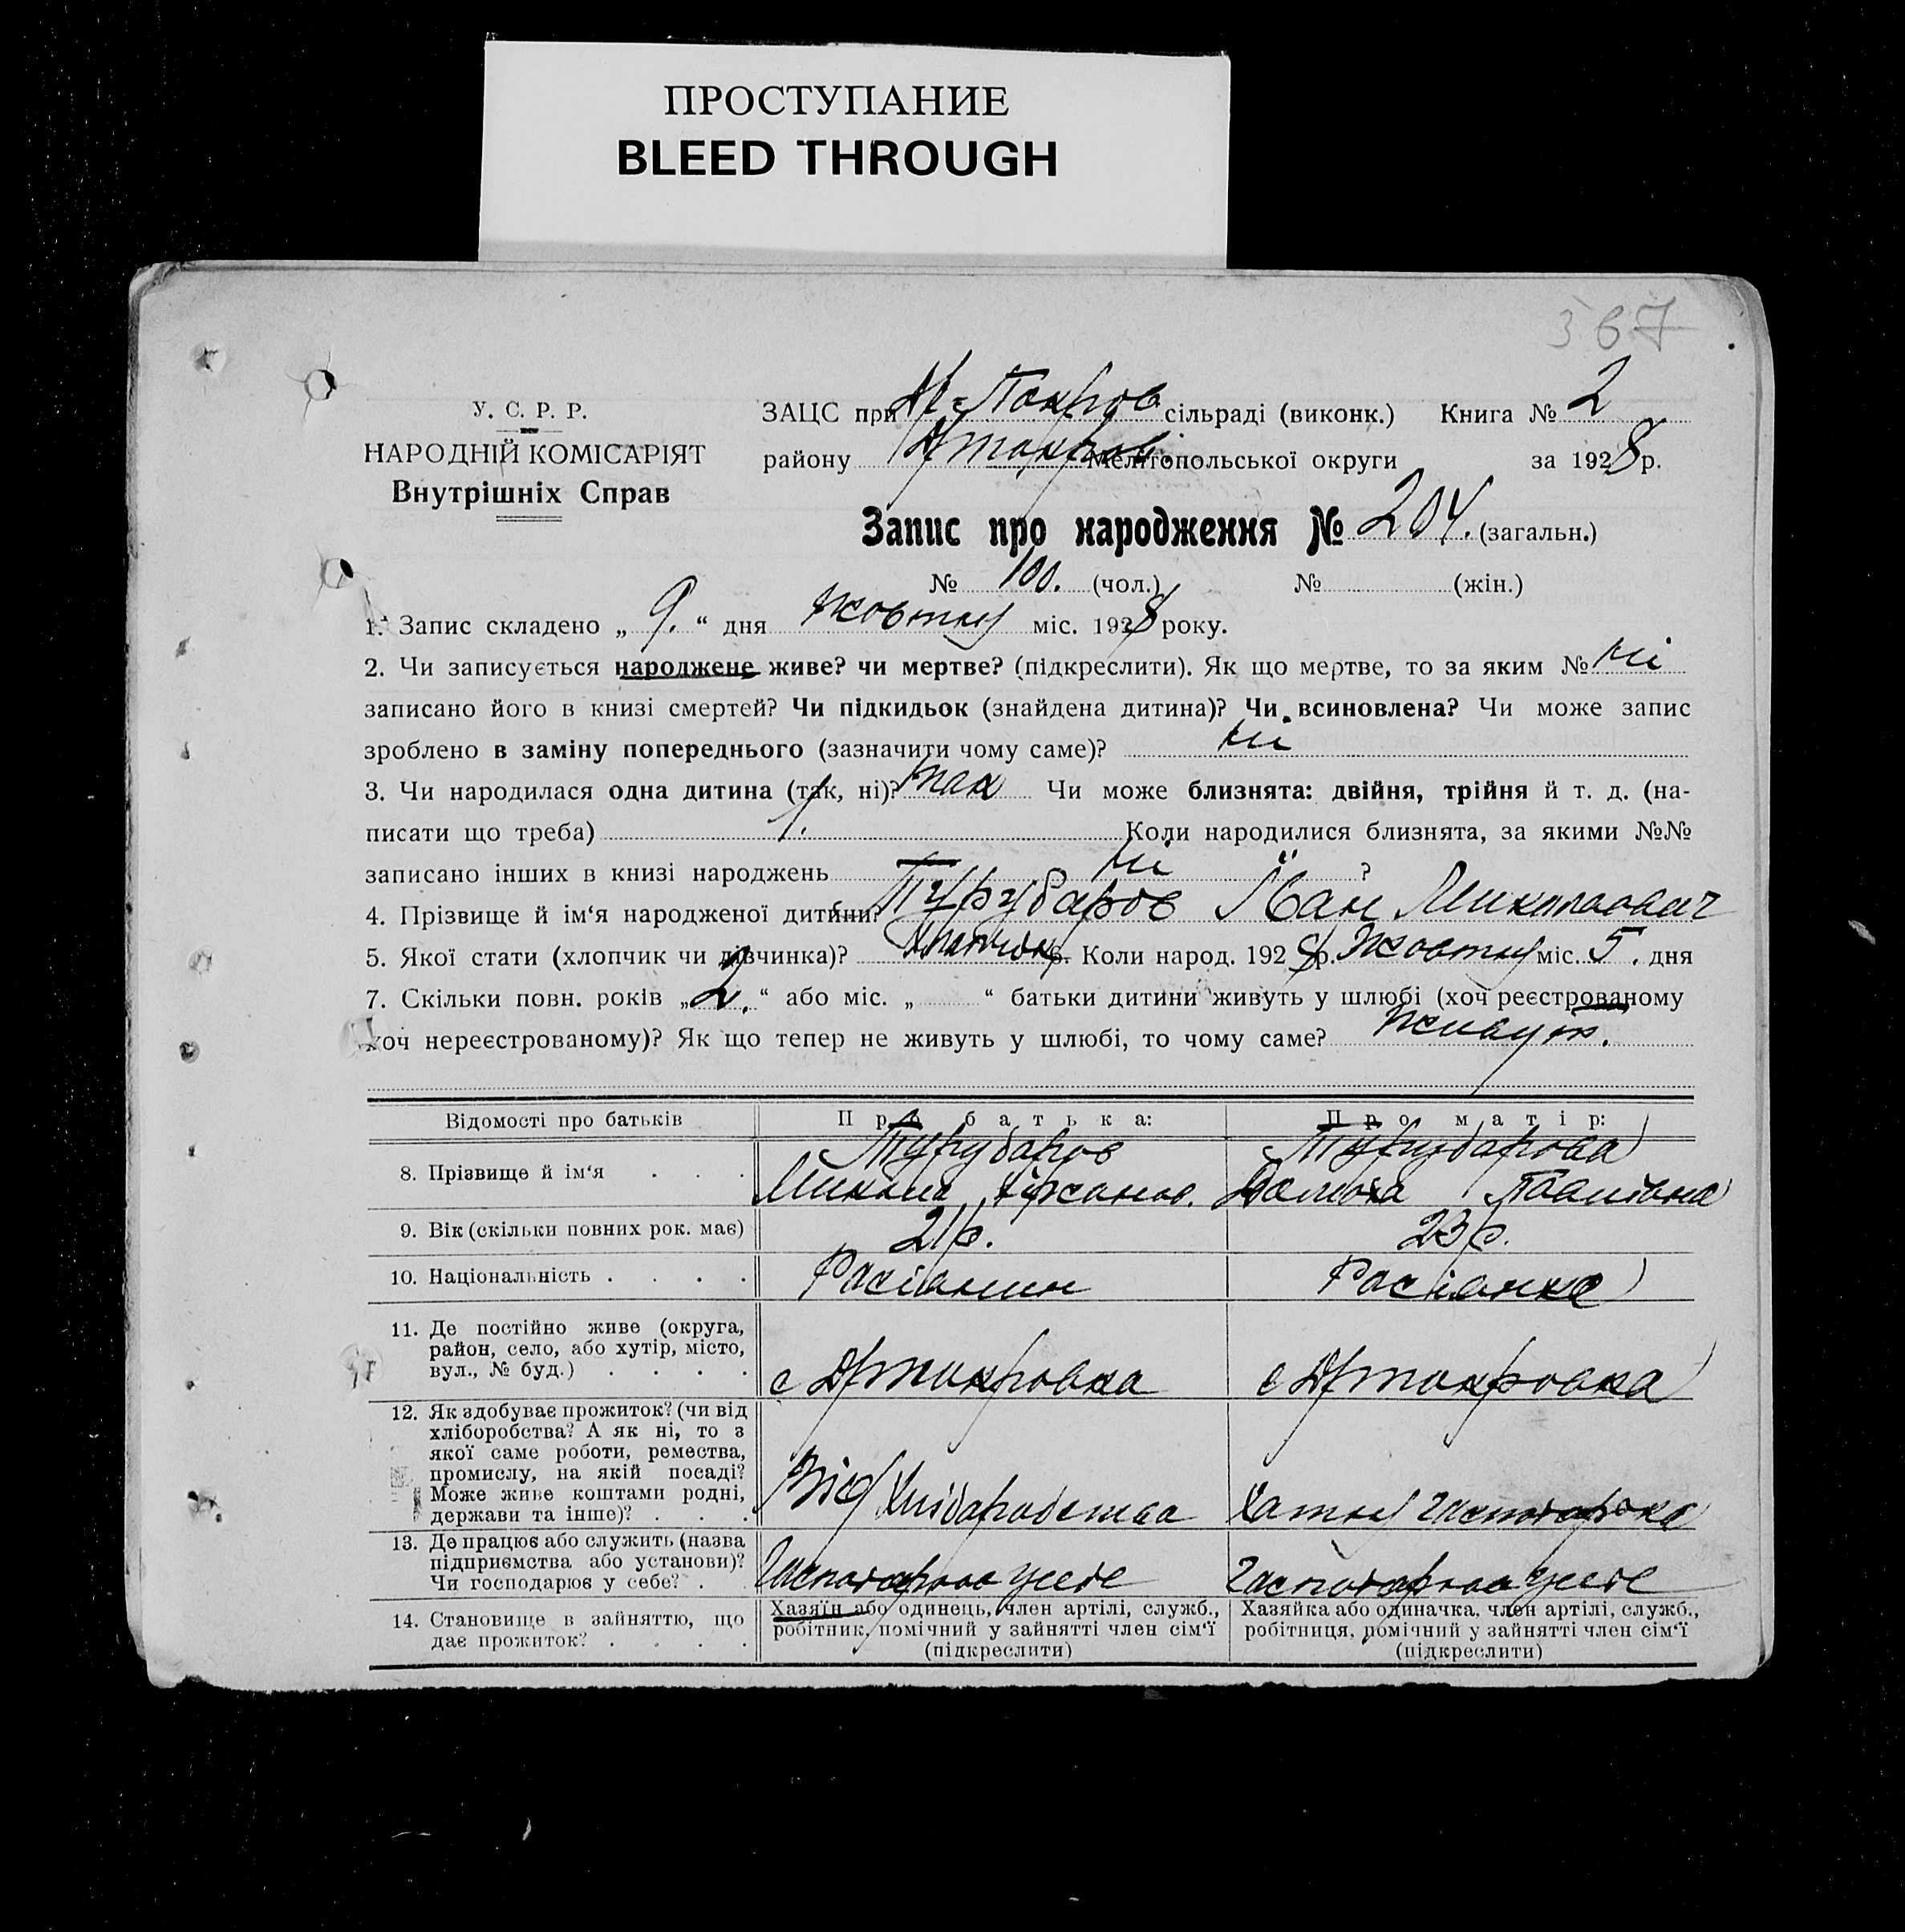 ПРОСТУПАНИЕ
BLEED THROUGH
367
У. С. Р. Р.
НАРОДНІЙ КОМІСАРІЯТ
Внутрішніх Справ
ЗАЦС при Н-Покров сільраді (виконк.) Книга № 2
району Мелітопольської округи за 1928 р.
Запис про народження № 204. (загальн.)
№ 100. (чол.) № (жін.)
1. Запис складено „ 9. “ дня Жовтня міс. 1928 року.
2. Чи записується народжене живе? чи мертве? (підкреслити). Як що мертве, то за яким № ні
записано його в книзі смертей? Чи підкидьок (знайдена дитина)? Чи всиновлена? Чи може запис
зроблено в заміну попереднього (зазначити чому саме)? ні
3. Чи народилася одна дитина (так, ні)? так Чи може близнята: двійня, трійня й т. д. (на-
писати що треба) 1. Коли народилися близнята, за якими №№
записано інших в книзі народжень ні ?
4. Прізвище й ім‘я народженої дитини? Турубаров Іван Миколаович
5. Якої стати (хлопчик чи дівчинка)? Хлопчик 6. Коли народ. 1928 р. Жовтня міс. 5. дня
7. Скільки повн. років „ 2. “ або міс. „ “ батьки дитини живуть у шлюбі (хоч реєстрованому
хоч нереєстрованому)? Як що тепер не живуть у шлюбі, то чому саме? Живуть.
Відомості про батьків Про батька: Про матір:
8. Прізвище й ім‘я . . . Турубаров Турубарова
Микола Павлівна
9. Вік (скільки повних рок. має) 21 р. 23 р.
10. Національність . . . . Росіянин Росіянка
11. Де постійно живе (округа,
район, село, або хутір, місто,
вул., № буд.) . . . . с
12. Як здобуває прожиток? (чи від
хліборобства? А як ні, то з
якої саме роботи, ремества,
промислу, на якій посаді?
Може живе коштами родні,
держави та інше)? . . . Від Хліборобства Хатня господарка
13. Де працює або служить (назва
підприємства або установи)?
Чи господарює у себе? . Господарює у себе Господарює у себе
14. Становище в зайняттю, що
дає прожиток? . . . .
Хазяїн або одинець, член артілі, служб.,
робітник, помічний у зайнятті член сім‘ї
(підкреслити)
Хазяйка або одиначка, член артілі, служб.,
робітниця, помічний у зайнятті член сім‘ї
(підкреслити)